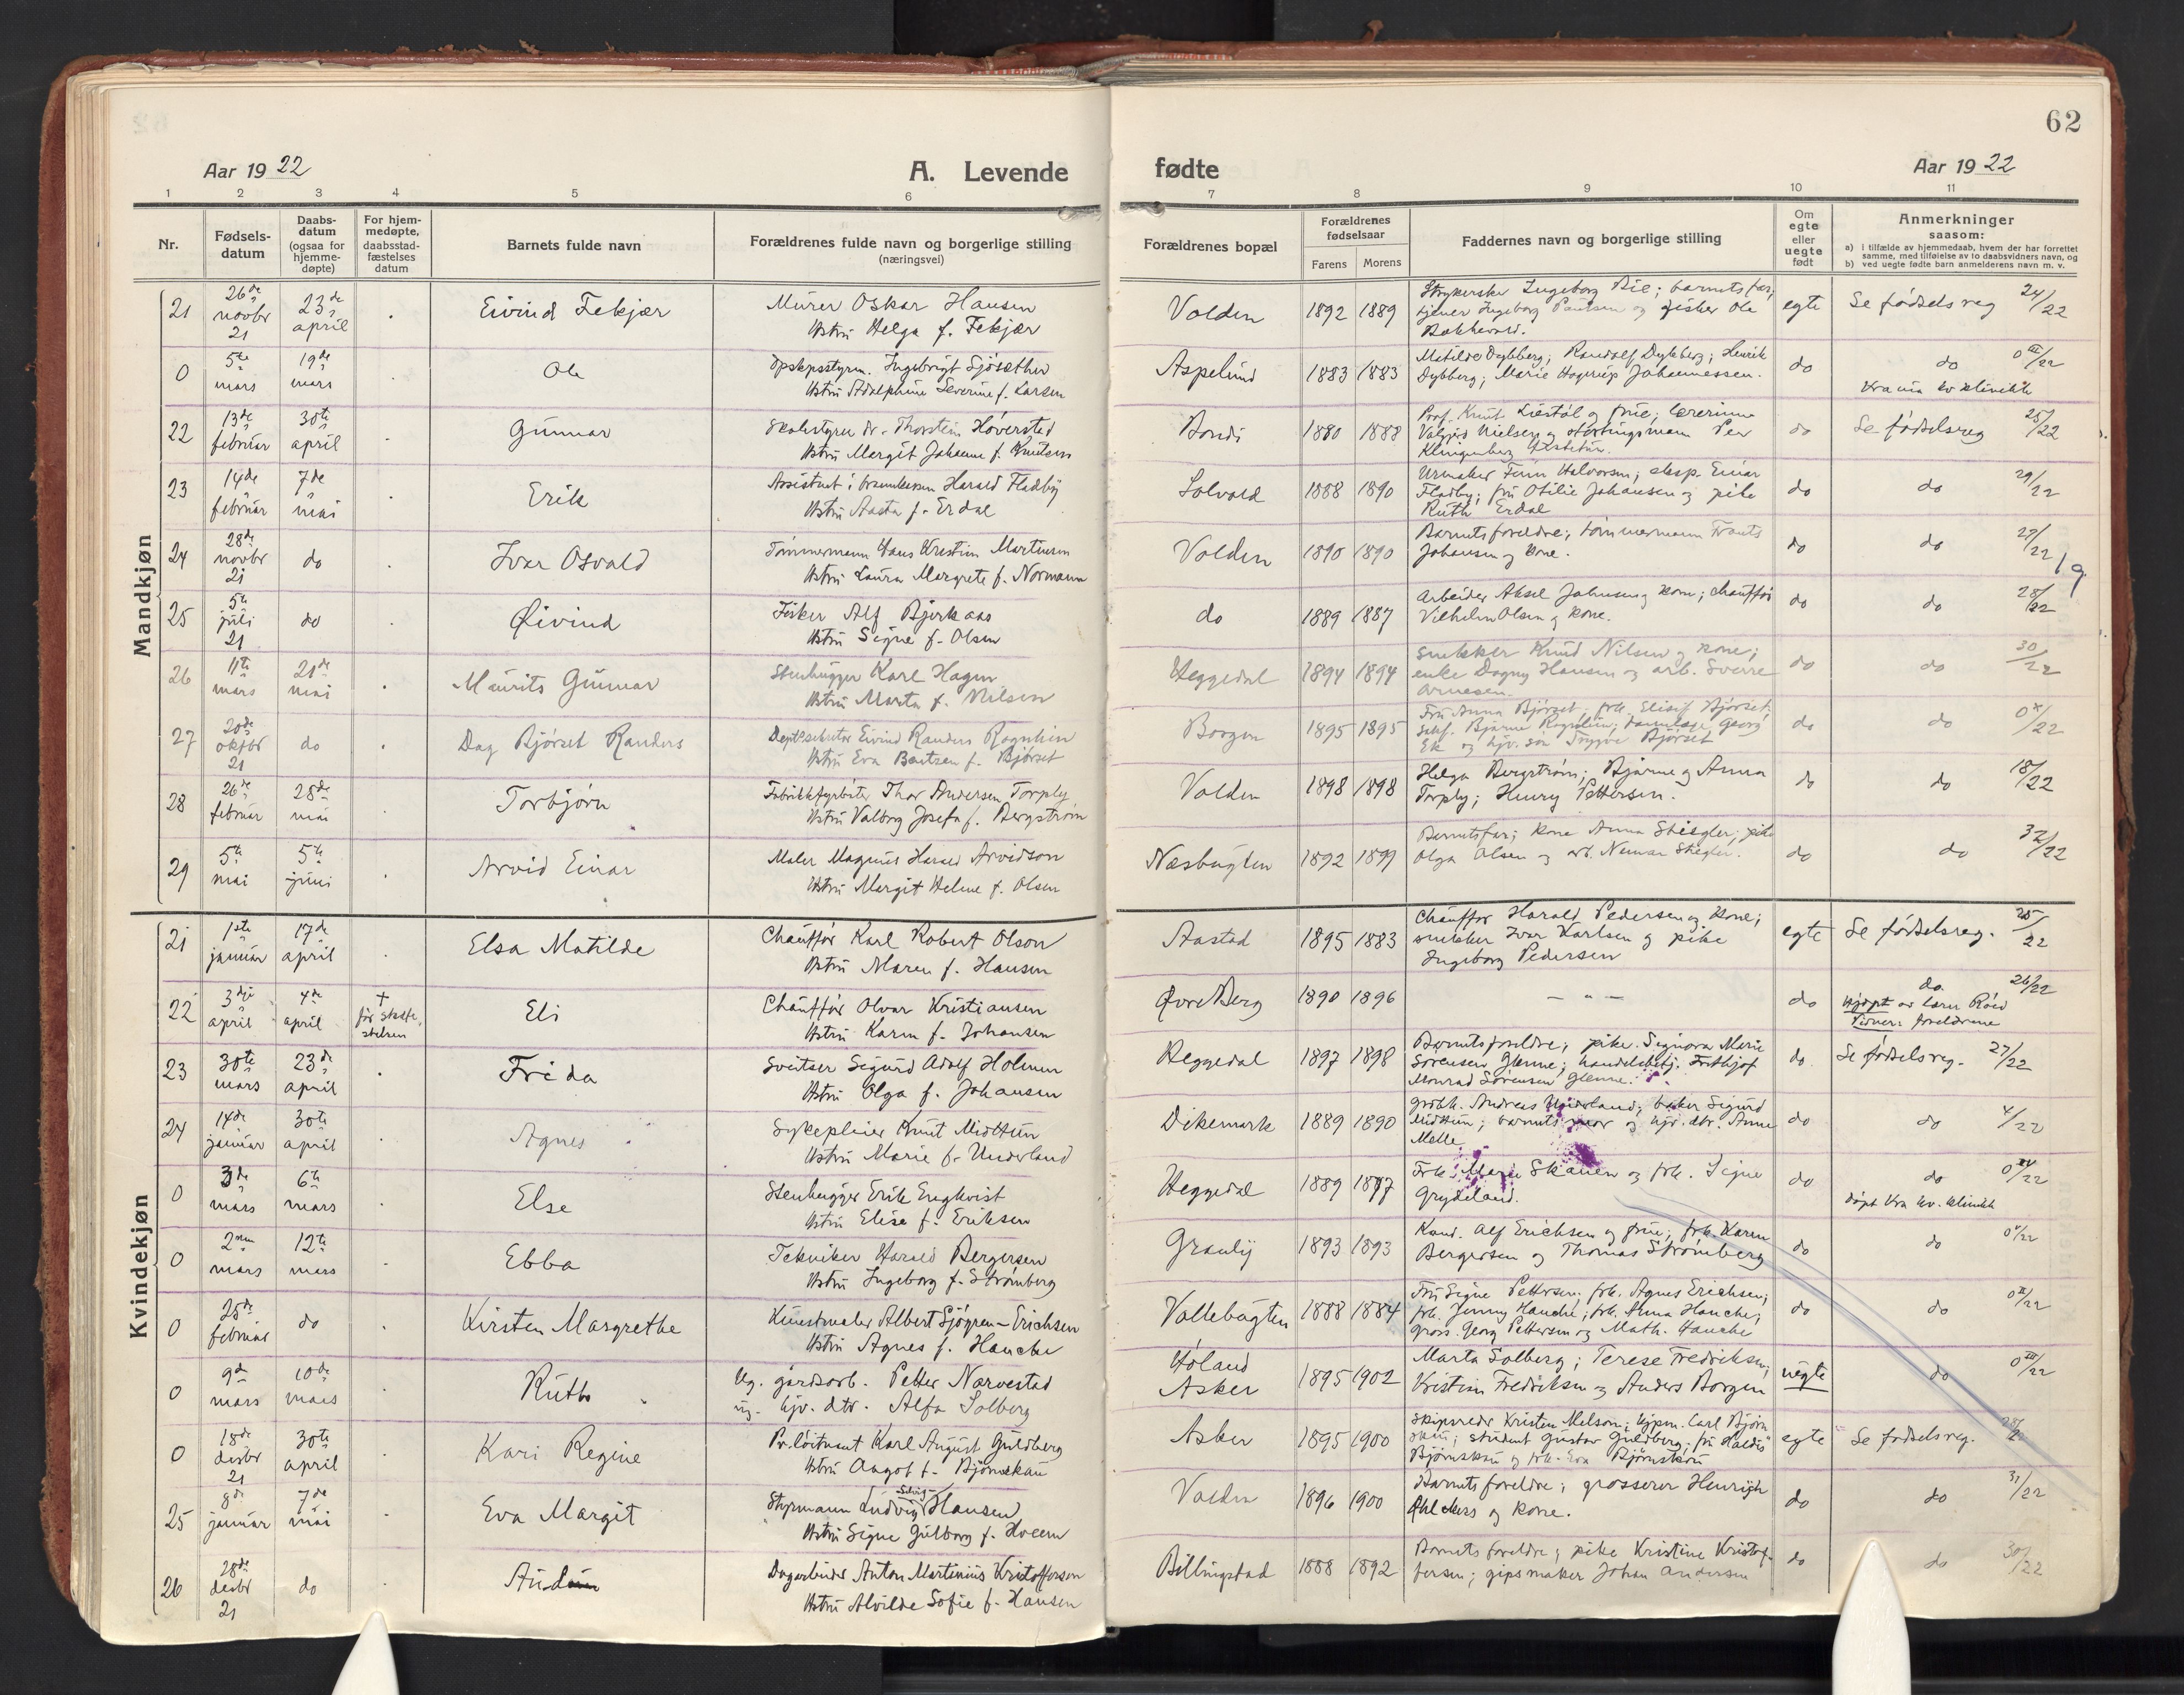 62
Aar 1922
A. Levende
fødte
Aar 1922
1 2 3 4 5 6 7 8 9 10 11
Nr.
Fødsels-
datum
Daabs-
datum
(ogsaa for
hjemme-
døpte)
For hjem-
medøpte,
daabsstad-
fæstelses
datum
Barnets fulde navn
Forældrenes fulde navn og borgerlige stilling
(næringsvei)
Forældrenes bopæl
Forældrenes
fødselsaar
Farens Morens
Faddernes navn og borgerlige stilling
Om
egte
eller
uegte
født
Anmerkninger
saasom:
a) i tilfælde av hjemmedaab, hvem der har forrettet
samme, med tilføielse av to daabsvidners navn, og
b) ved uegte fødte barn anmelderens navn m. v.
Mandkjøn
21 26de novbr 21 23de april Eivind Fekjær
Murer Oskar Hansen
Hstru Helga f. Fekjær
Volden 1892 1889
Strykerske Ingeborg Bie; barnets far;
tjener Ingeborg Paulsen og fisker Ole
Bakkevold.
egte Se fødselsreg 24/22
0 5te mars 19de mars Ole
Ingebrigt Sjøsæther
Hstru Adolphine Severine f. Larsen
Aspelund 1883 1883
Matilde Dybberg; Randolf Dybberg; Henrik
Dybberg; Marie Hagerup Johannessen.
do do 0 III/22
Kra kv klinikk
22 13de februar 30te april Gunnar
Skolestyrer dr. Thorstein Høverstad
Hstru Margit Johanne f. Knudsen
Bondi 1880 1888
Prof. Knut Liestøl og frue; lærerinne
Valgjerd Nielsen og stortingsmann Peer
Klingenberg Hestetun.
do Se fødselsreg 25/22
23 14de februar 7de mai Erik
Assistent i Harald Fladby
Hstru Aasta f. Erdal
Solvold 1888 1890
Urmaker Finn Halvorsen; eksp. Einar
Fladby; fru Otilie Johansen og pike
Ruth Erdal
do do 29/22
24 28de novbr 21 do Ivar Osvald
Tømmermann Hans Kristian Martinsen
Hstru Laura Margrete f. Normann
Volden 1890 1890
Barnets foreldre; tømmermann Frants
Johansen og kone.
do do 27/22
25 5te juli 21 do Øivind
Fisker Alf Bjerkaas
Hstru Signe f. Olsen
do 1889 1887
Arbeider Aksel Johnsen og kone; chauffør
Vilhelm Olsen og kone.
do do 28/22
26 11te mars 21de mai Maurits Gunnar
Stenhugger Karl Hagen
Hstru Marta f. Nilsen
Heggedal 1894 1894
Snekker Knud Nilsen og kone;
enke Dagny Hansen og arb. Sverre
Arnesen.
do do 30/22
27 20de oktbr 21 do Dag Bjørset Randers
Dept.sekretær Eivind Randers Ragnhin
Hstru Eva Bertsen f. Bjørset
Borgen 1895 1895
Fru Anna Bjørset; frk. Elisif Bjørset;
Bjarne tannlæge Georg
Ek og hjv. søn Trygve Bjørset
do do 0 X/22
28 26de februar 28de mai Torbjørn
Fabrikkfyrbøter Thor Andersen Torpby
Hstru Valborg Josefa f. Bergstrøm
Volden 1898 1898
Helga Bergstrøm; Bjarne og Anna
Torpby; Henry Pettersen.
do do 18/22
29 5te mai 5te juni Arvid Einar
Maler Magnus Harald Arvidson
Hstru Margit Helene f. Olsen
Næsbugten 1892 1899
Barnets far; kone Anna Stiegler; pike
Olga Olsen og arb. Neuman Stiegler.
do do 32/22
Kvindekjøn
21 1ste januar 17de april Elsa Matilde
Chauffør Karl Robert Olson
Hstru Maren f. Hansen
Aastad 1895 1883
Chauffør Harald Pedersen og kone;
snekker Ivar Karlsen og pike
Ingeborg Pedersen
egte Se fødselsreg. 25/22
22 3dje april 4de april † før stadfestelsen Eli
Chauffør Olvar Kristiansen
Hstru Karen f. Johansen
Øvre Berg 1890 1896 — " —
do do 26/22
Hjdøpt av lærer Røed
Vidner: foreldrene
23 30te mars 23de april Frida
Sveitser Sigurd Adolf Holmen
Hstru Olga f. Johansen
Heggedal 1897 1898
Barnets foreldre; pike Signora Marie
Sørensen Glenne; handelsbetj. Frithjof
Monrad Sørensen Glenne.
do Se fødselsreg. 27/22
24 14de januar 30te april Agnes
Sykepleier Knut Midttun
Hstru Marie f. Underland
Dikemark 1889 1890
gvbk. Andreas Underland; baker Sigurd
Midttun; barnets mor og hjv. dtr. Anne
Melle
do do 4/22
0 3de mars 6te mars Else
Stenhugger Erik Engkvist
Hstru Elise f. Eriksen
Heggedal 1889 1887
Frk. Marie Skauen og frk. Signe
Grydeland.
do do 0 IV/22
døpt Kra kv. klinikk
0 2nen mars 12te mars Ebba
Tekniker Harald Bergersen
Hstru Ingeborg f. Strømberg
Granly 1893 1893
Kand. Alf Erichsen og frue; frk. Karen
Bergersen og Thomas Strømberg
do do 0 V/22
0 25de februar do Kirsten Margrethe
Kunstmaler Albert Sjögren-Erichsen
Hstru Agnes f. Hauche
Vollebugten 1888 1884
Fru Signe Pettersen; frk. Agnes Erichsen;
frk. Jenny Hauche; frk. Anna Hauche;
gross. Georg Pettersen og Math. Hauche
do do 0 II/22
0 9de mars 10de mars Ruth
Ug. gårdsarb. Petter Narvestad
ug. hjv. dtr. Alfa Solberg
Høland
Asker 1895 1902
Marta Solberg; Terese Fredriksen;
Kristian Fredriksen og Anders Borgen
uegte do 0 III/22
0 18de desbr 21 30te april Kari Regine
Pr.løitnant Karl August Guldberg
Hstru Aagot f. Bjørnskau
Asker 1895 1900
Skipsreder Kristen Nelson; kjøpm. Carl Bjørn-
skau; student Gustav Guldberg; fru Haldis
Bjørnskau og frk. Eva Bjørnskau
egte Se fødselsreg.
25 8de januar 7de mai Eva Margit
Styrmann Ludvig Hansen
Hstru Signe Gulborg f. Hveem
Volden 1896 1900
Barnets foreldre; grosserer Henrik
Ahlckers og kone.
do do 31/22
26 28de desbr 21 do
Dagarbeider Anton Martinius Kristofferson
Hstru Alvilde Sofie f. Hansen
Billingstad 1888 1892
Barnets foreldre; pike Kristine Kristof-
fersen; gipsmaker Johan Andersen
do do 30/22